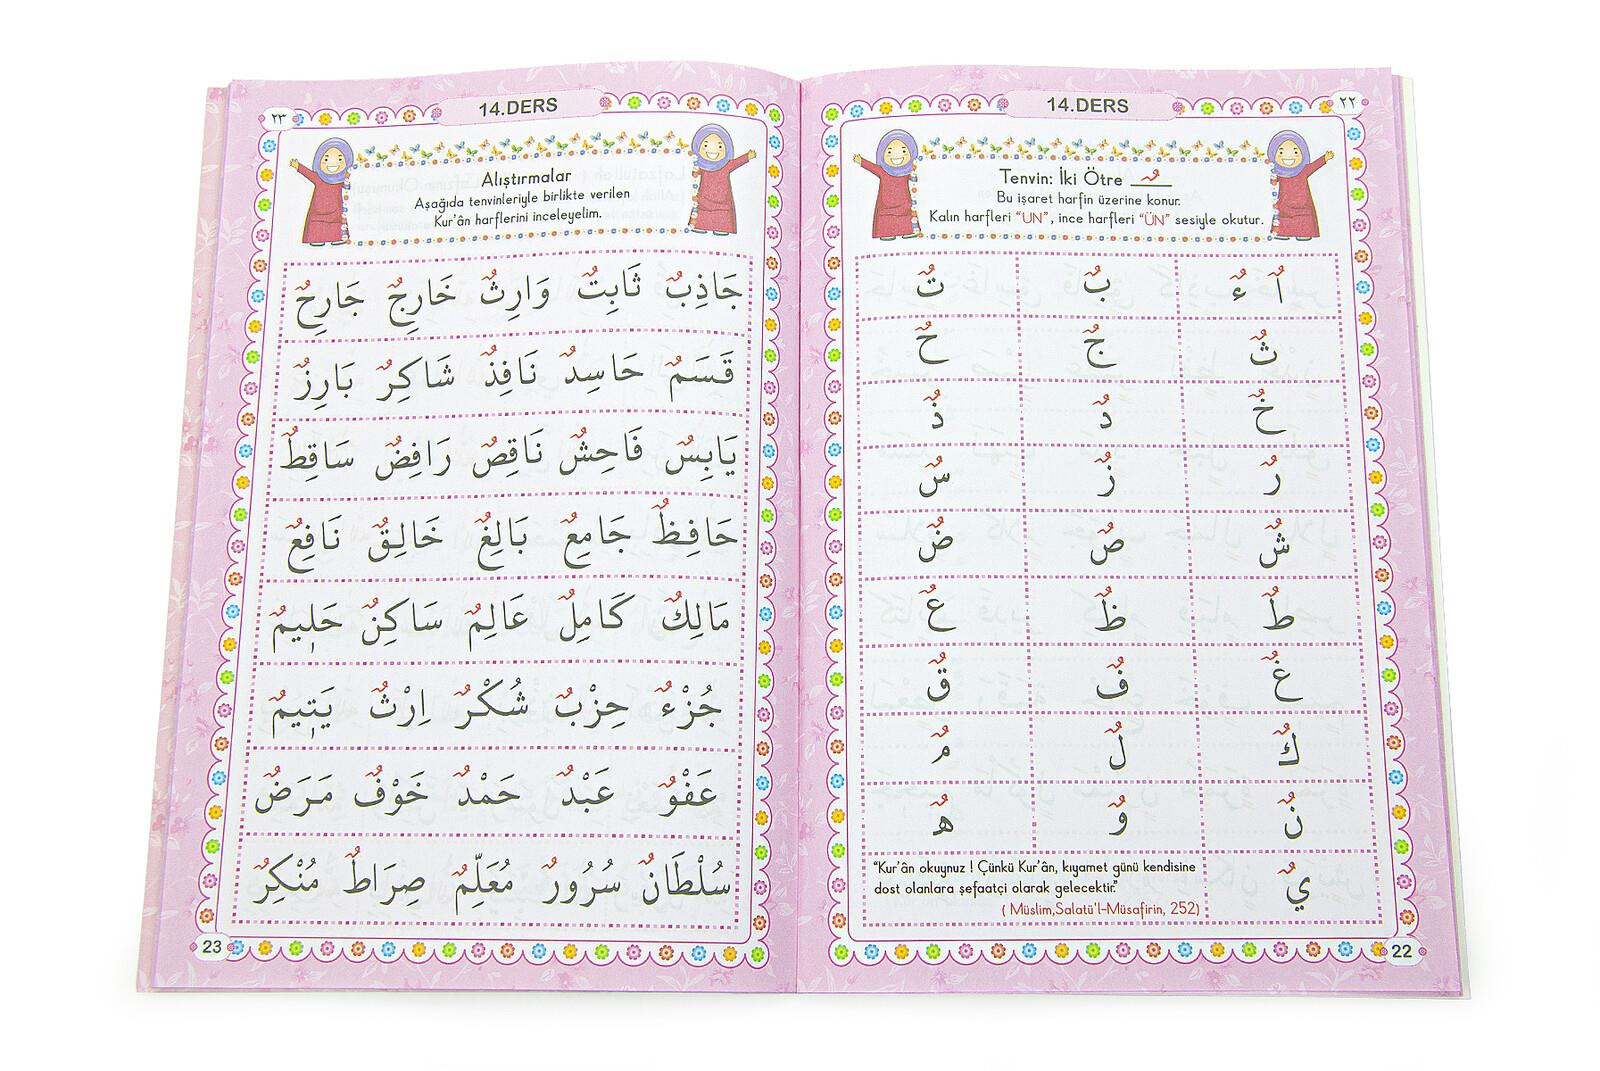 ٢٢
14.DERS
Tenvin: İki Ötre ـٌـ
Bu işaret harfin üzerine konur.
Kalın harfleri “UN”, ince harfleri “ÜN” sesiyle okutur.
اٌ ءٌ بٌ تٌ
ثٌ جٌ حٌ
خٌ دٌ ذٌ
رٌ زٌ سٌ
شٌ صٌ ضٌ
طٌ ظٌ عٌ
غٌ فٌ قٌ
كٌ لٌ مٌ
نٌ وٌ هٌ
يٌ
“Kur’ân okuyunuz ! Çünkü Kur’ân, kıyamet günü kendisine
dost olanlara şefaatçi olarak gelecektir.”
( Müslim,Salatü'l-Müsafirin, 252)
22
٢٣
14.DERS
Alıştırmalar
Aşağıda tenvinleriyle birlikte verilen
Kur’ân harflerini inceleyelim.
جَاذِبٌ ثَابِتٌ وَارِثٌ خَارِجٌ جَارِحٌ
قَسَمٌ حَاسِدٌ نَافِذٌ شَاكِرٌ بَارِزٌ
يَابِسٌ فَاحِشٌ نَاقِصٌ رَافِضٌ سَاقِطٌ
حَافِظٌ جَامِعٌ بَالِغٌ خَالِقٌ نَافِعٌ
مَالِكٌ كَامِلٌ عَالِمٌ سَاكِنٌ حَلِيمٌ
جُزْءٌ حِزْبٌ شُكْرٌ اِرْثٌ يَتِيمٌ
عَفْوٌ عَبْدٌ حَمْدٌ خَوْفٌ مَرَضٌ
سُلْطَانٌ سُرُورٌ مُعَلِّمٌ صِرَاطٌ مُنْكِرٌ
23